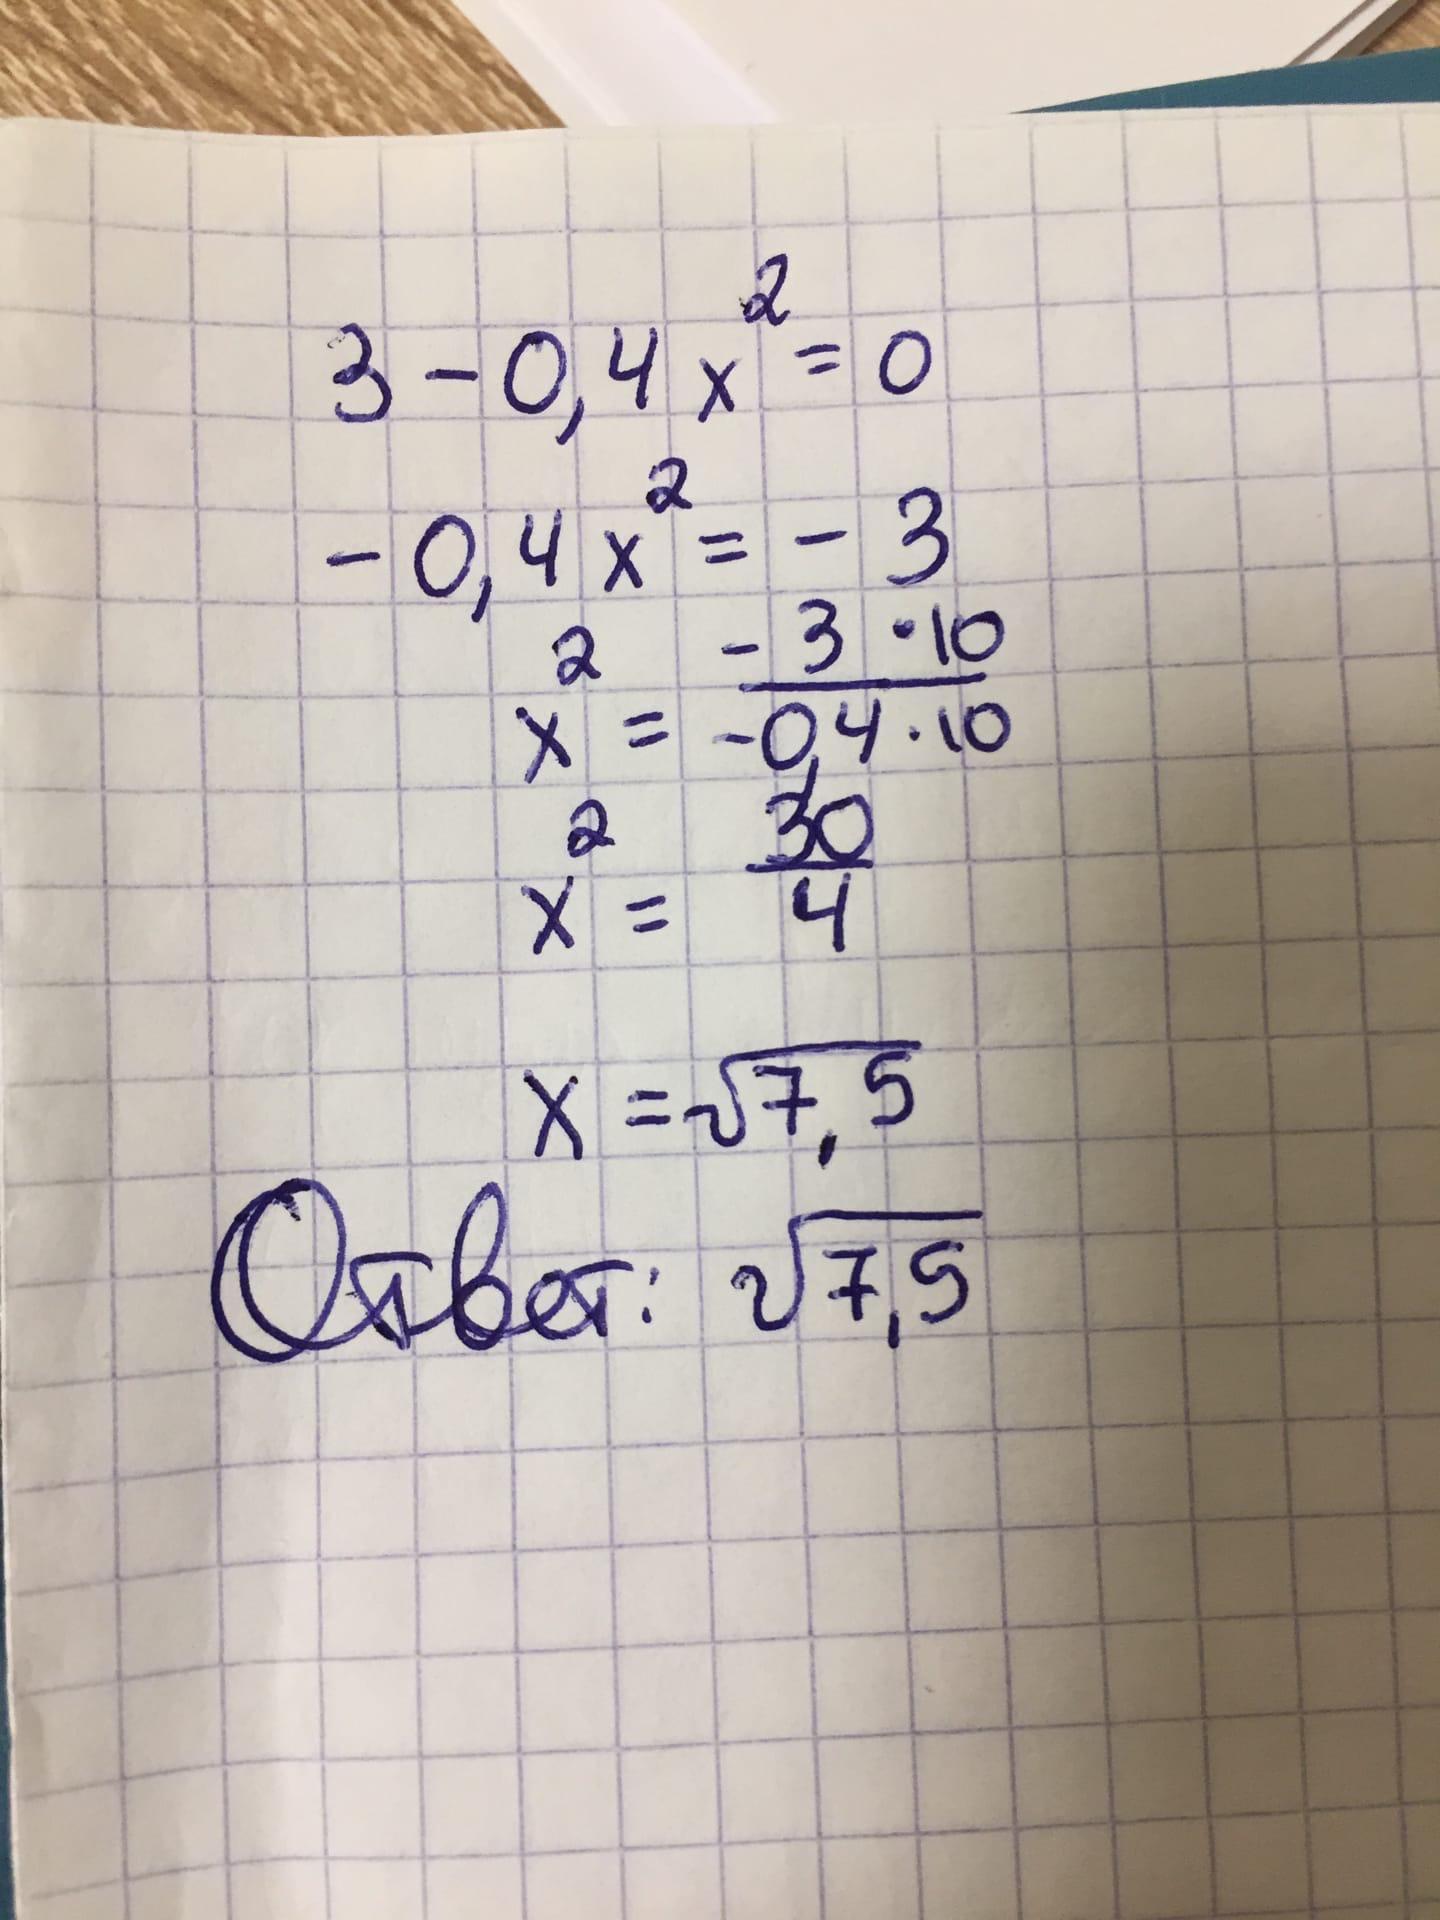 3 - 0,4x² = 0
- 0,4x² = - 3
x² = - 3 · 10 / -0,4 · 10
x² = 30 / 4
x = √7,5
Ответ: √7,5